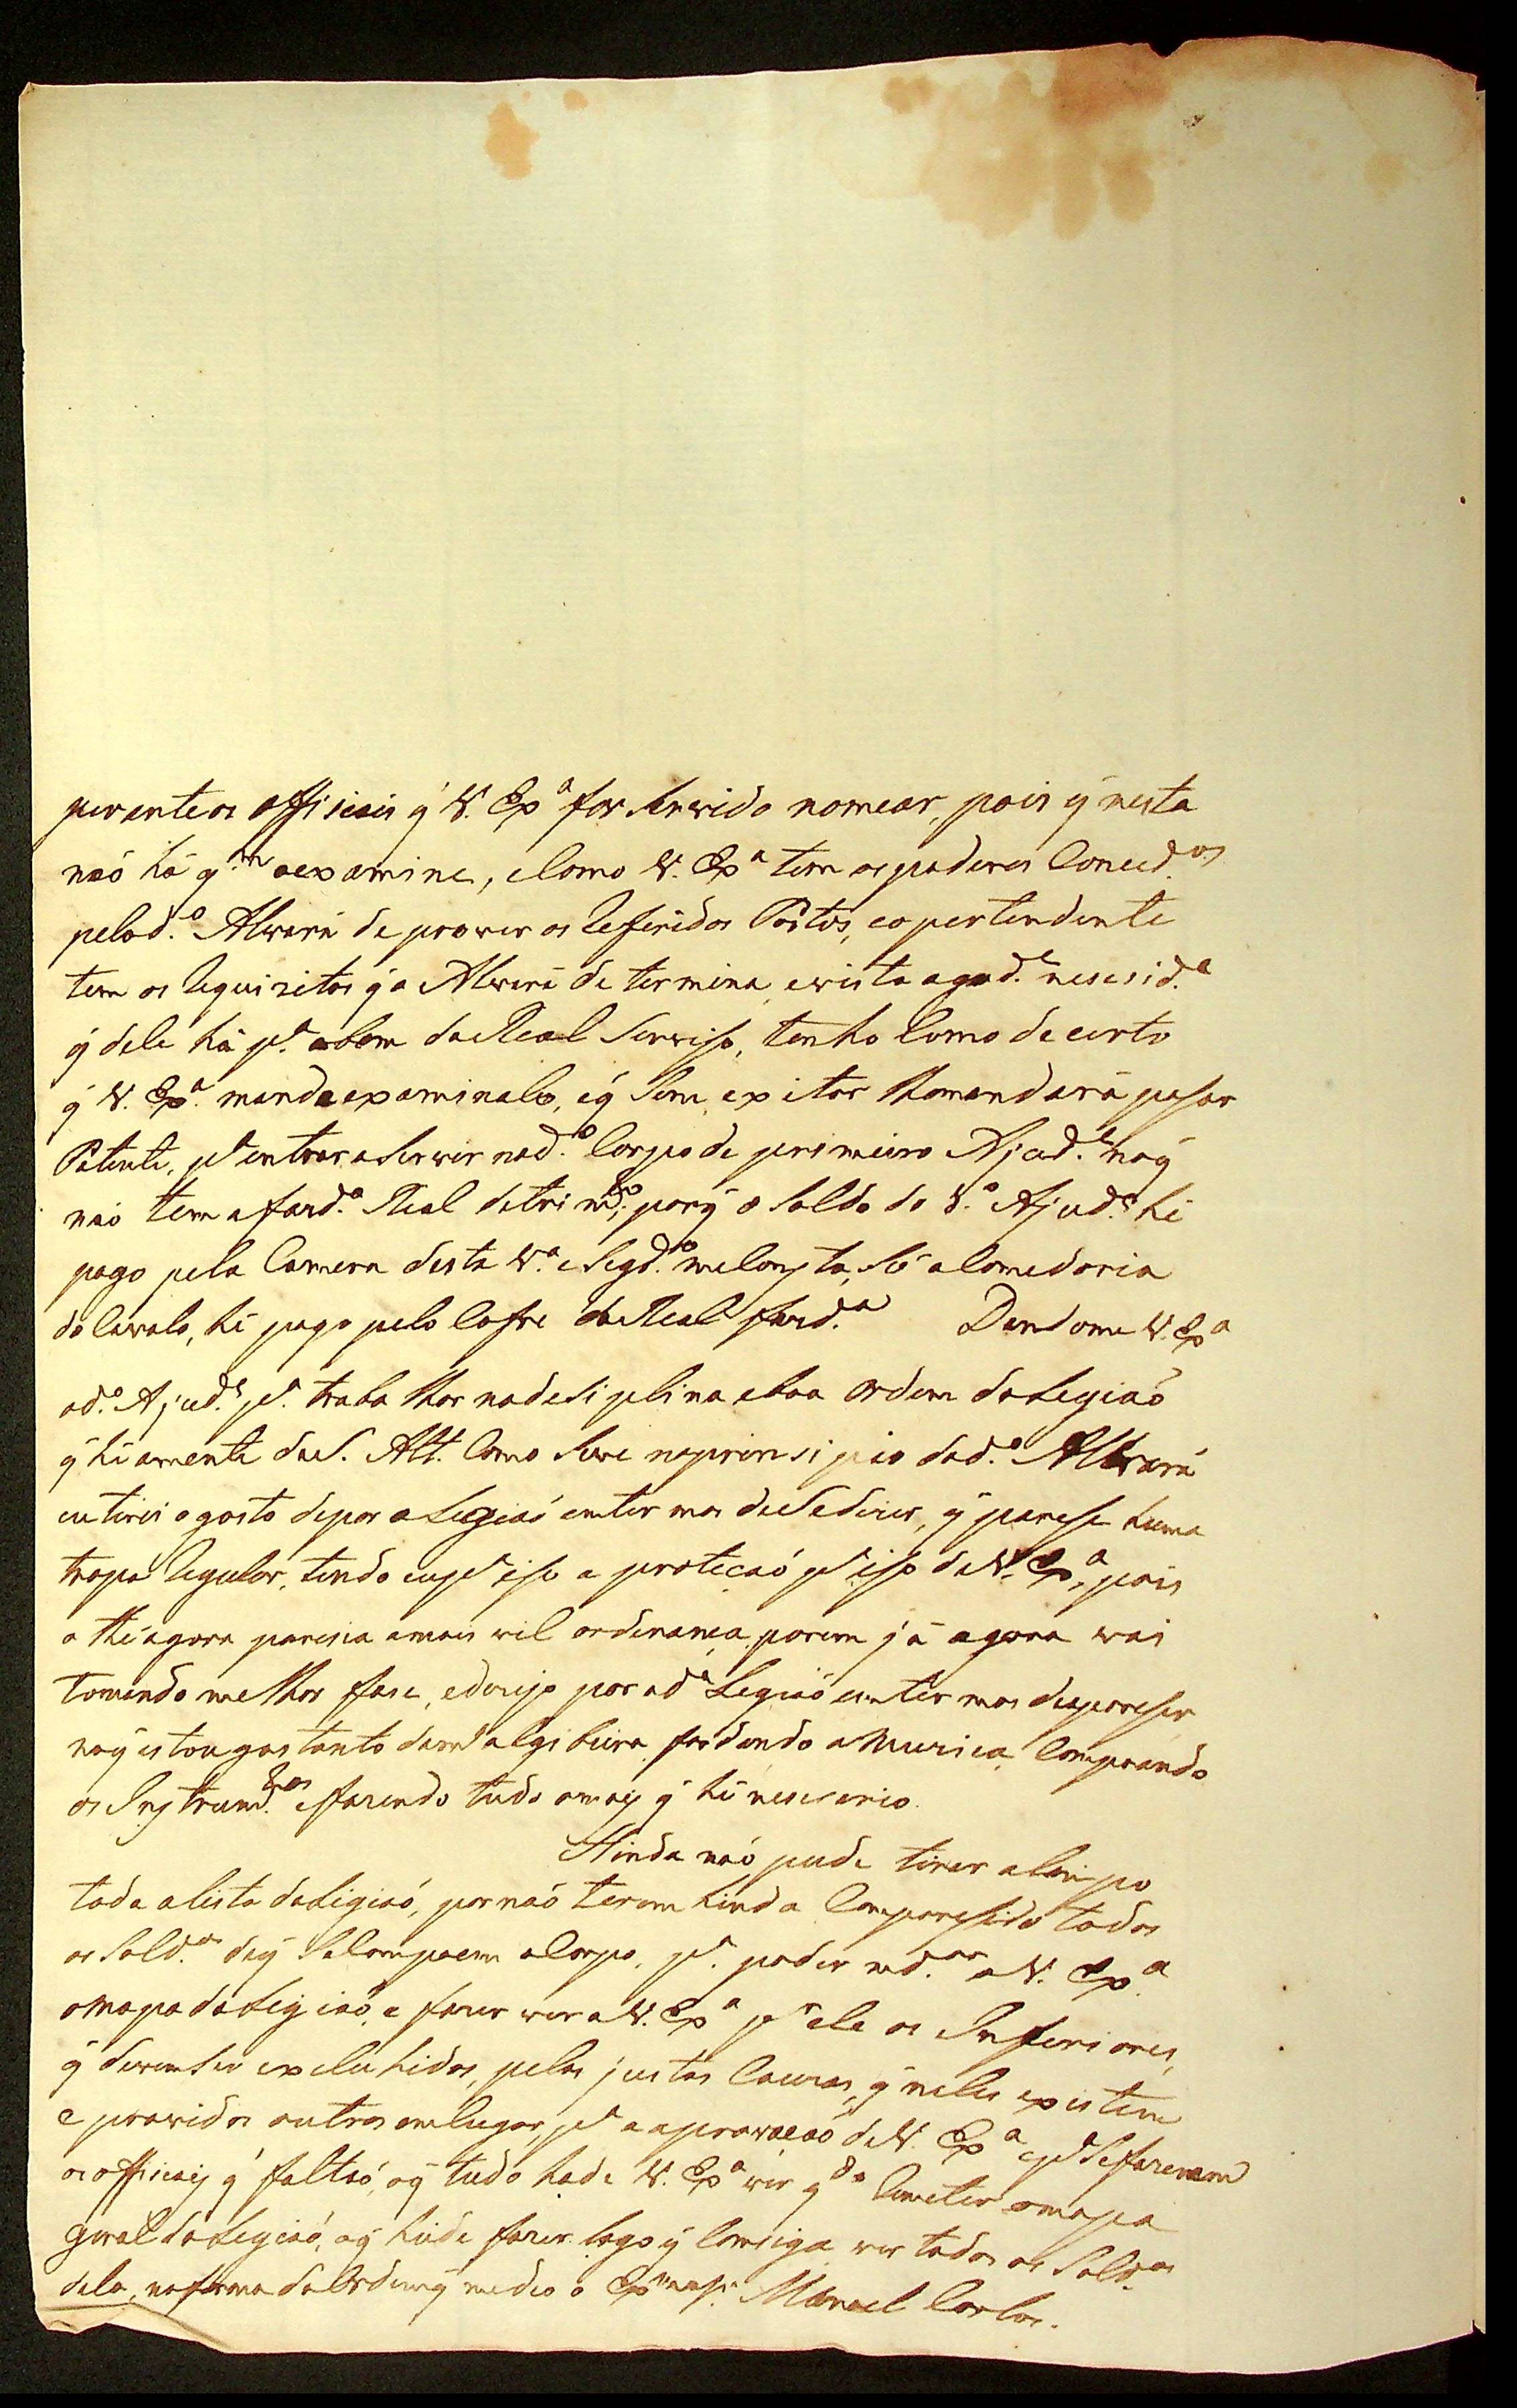 perante os officiais q̃ V. Ex.ª for servido nomear, pois q̃ nesta
naõ há q.m o examine, e como V. Ex.ª tem os poderes conced.os
pelo d.º Alvará de prover os referidos Postos, e o pertendente
tem os requizitos q̃ o Alvará determina, e vista a grd.e nesesid.e
q̃ dele há p.ª o bem do Real Serviso, tenho como de certo
q̃ V. Ex.ª manda examinalo, e q̃ sem exitar lhe mandará pasar
Patente, p.ª entrar a servir no d.º Corpo de primeiro Ajud.e no q̃
naõ tem a fazd.ª Real detrim.to, porq̃ o soldo do d.º Ajud.e hé
pago pela Camera desta V.ª e segd.º me consta, só a comedoria
do cavalo, hé pago pelo Cofre da Real fazd.ª Dandome V. Ex.ª
o d.º Ajud.e p.ª trabalhar na desiplina e boa ordem da Legiaõ
q̃ hé a mente de S. Alt. como se ve no prinsipio do d.º Alvará
eu terei o gosto de por a Legiaõ em termos de se dizer, q̃ parese huma
tropa regular, tendo eu p.ª iso a proteçaõ p.ª iso de V. Ex.ª, pois
athé agora paresia a mais vil ordenança, porem já agora vai
tomando melhor fase, e dezejo por a d.ª Legiaõ em termos de apareser
no q̃ estou gastando da m.ª algibeira fardando a Muzica, comprando
os Instrum.tos e fazendo tudo o mais q̃ hé nesesario.
Hinda naõ pude tirar a limpo
toda a lista da Legiaõ, por naõ terem hinda comparesido todos
os Sold.os de q̃ se compoem o Corpo, p.ª poder md.ar a V. Ex.ª
o Mapa da Legiaõ, e fazer ver a V. Ex.ª p.r ele os Inferiores,
q̃ devem ser excluhidos, pelas justas cauzas, q̃ neles existem
e providos outros em lugar, p.ª a aprovaçaõ de V. Ex.ª e p.ª se fazerem
os officiais q̃ faltaõ, o q̃ tudo hade V. Ex.ª ver q.do remeter o mapa
geral da Legiaõ, o q̃ hirde fazer logo q̃ consiga ver todos os Sold.os
dela, na forma da Ordem q̃ me deo o Manoel Carlos.